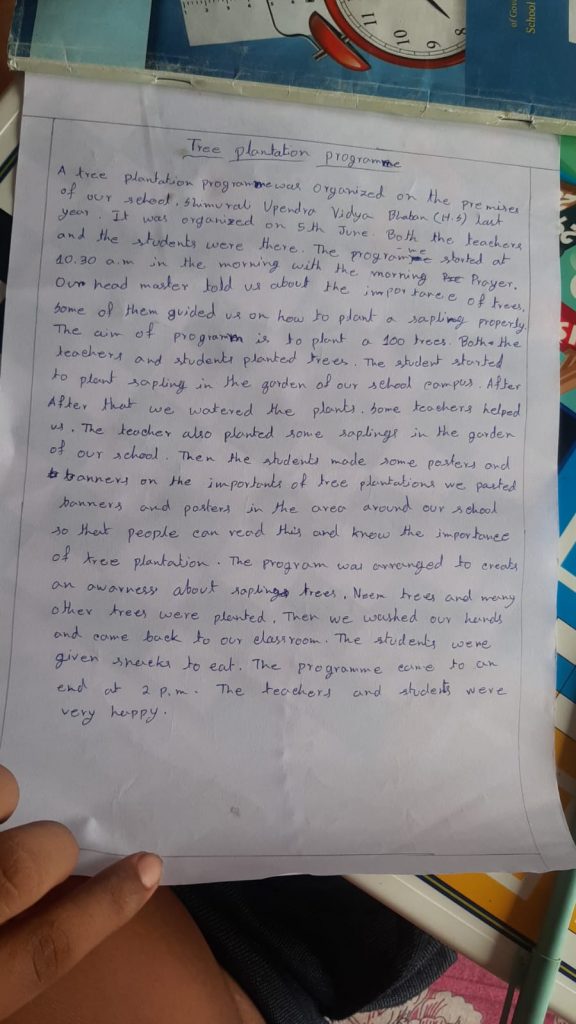 of Gov
School
11
10
9
8
6
Tree plantation programme
A tree plantation programme was organized on the premises
of our school, Shimurali Upendra Vidya Bhaban (H.S) last
year. It was organized on 5th June. Both the teachers
and the students were there. The programme started at
10.30 a.m in the morning with the morning Prayer.
Our head master told us about the importance of trees,
Some of them guided us on how to plant a sapling properly.
The aim of program is to plant a 100 trees. Both the
teachers and students planted trees. The student started
to plant sapling in the garden of our school campus. After
After that we watered the plants. Some teachers helped
us. The teacher also planted some saplings in the garden
of our school. Then the students made some posters and
banners on the importants of tree plantations we pasted
banners and posters in the area around our school
so that people can read this and know the importance
of tree plantation. The program was arranged to create
an awarness about sapling trees. Neem trees and many
other trees were planted. Then we washed our hands
and came back to our classroom. The students were
given snacks to eat. The programme came to an
end at 2 p.m. The teachers and students were
very happy.